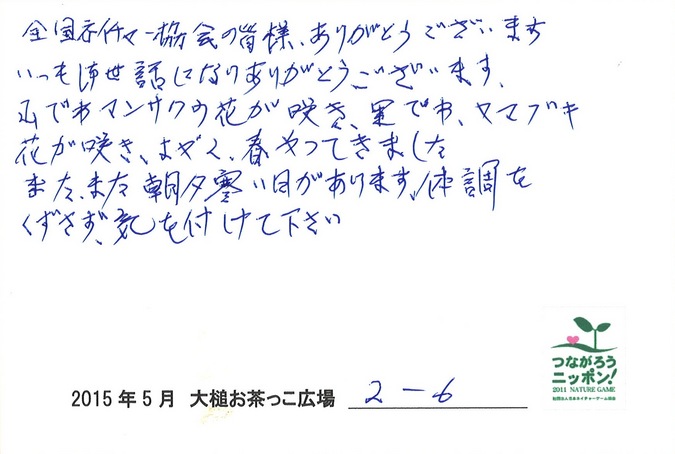 全国ネイチャー協会の皆様、ありがとうございます
いつもお世話になりありがとうございます。
山でわマンサクの花が咲き、里でわ、ヤマブキ
花が咲き、よやく、春やってきました
まだ、まだ朝夕寒い日があります。体調を
くずさず、気を付けて下さい
2015年5月 大槌お茶っこ広場 2-6
つながろう
ニッポン!
2011 NATURE GAME